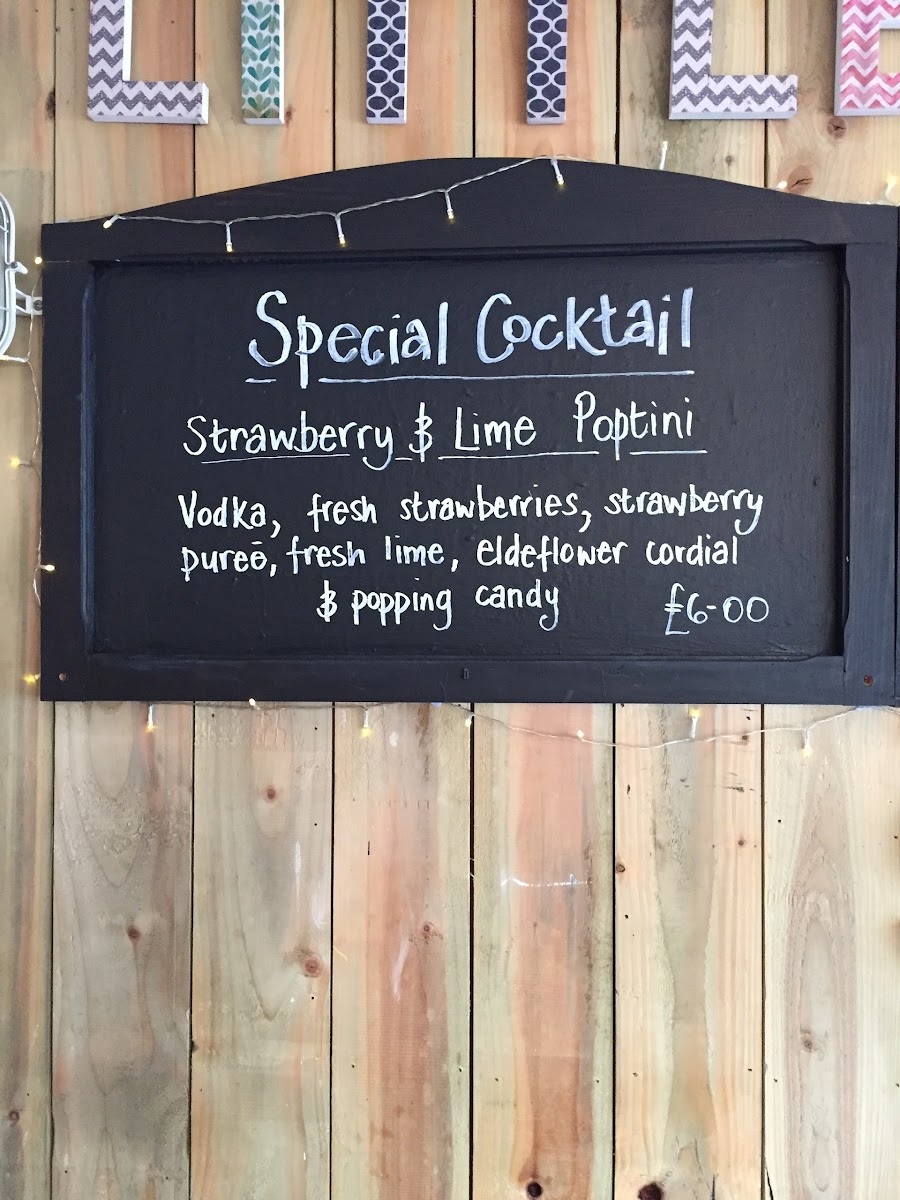 LITTLE
Special Cocktail
Strawberry & Lime Poptini
Vodka, fresh strawberries, strawberry
pureē, fresh lime, eldeflower cordial
& popping candy £6-00